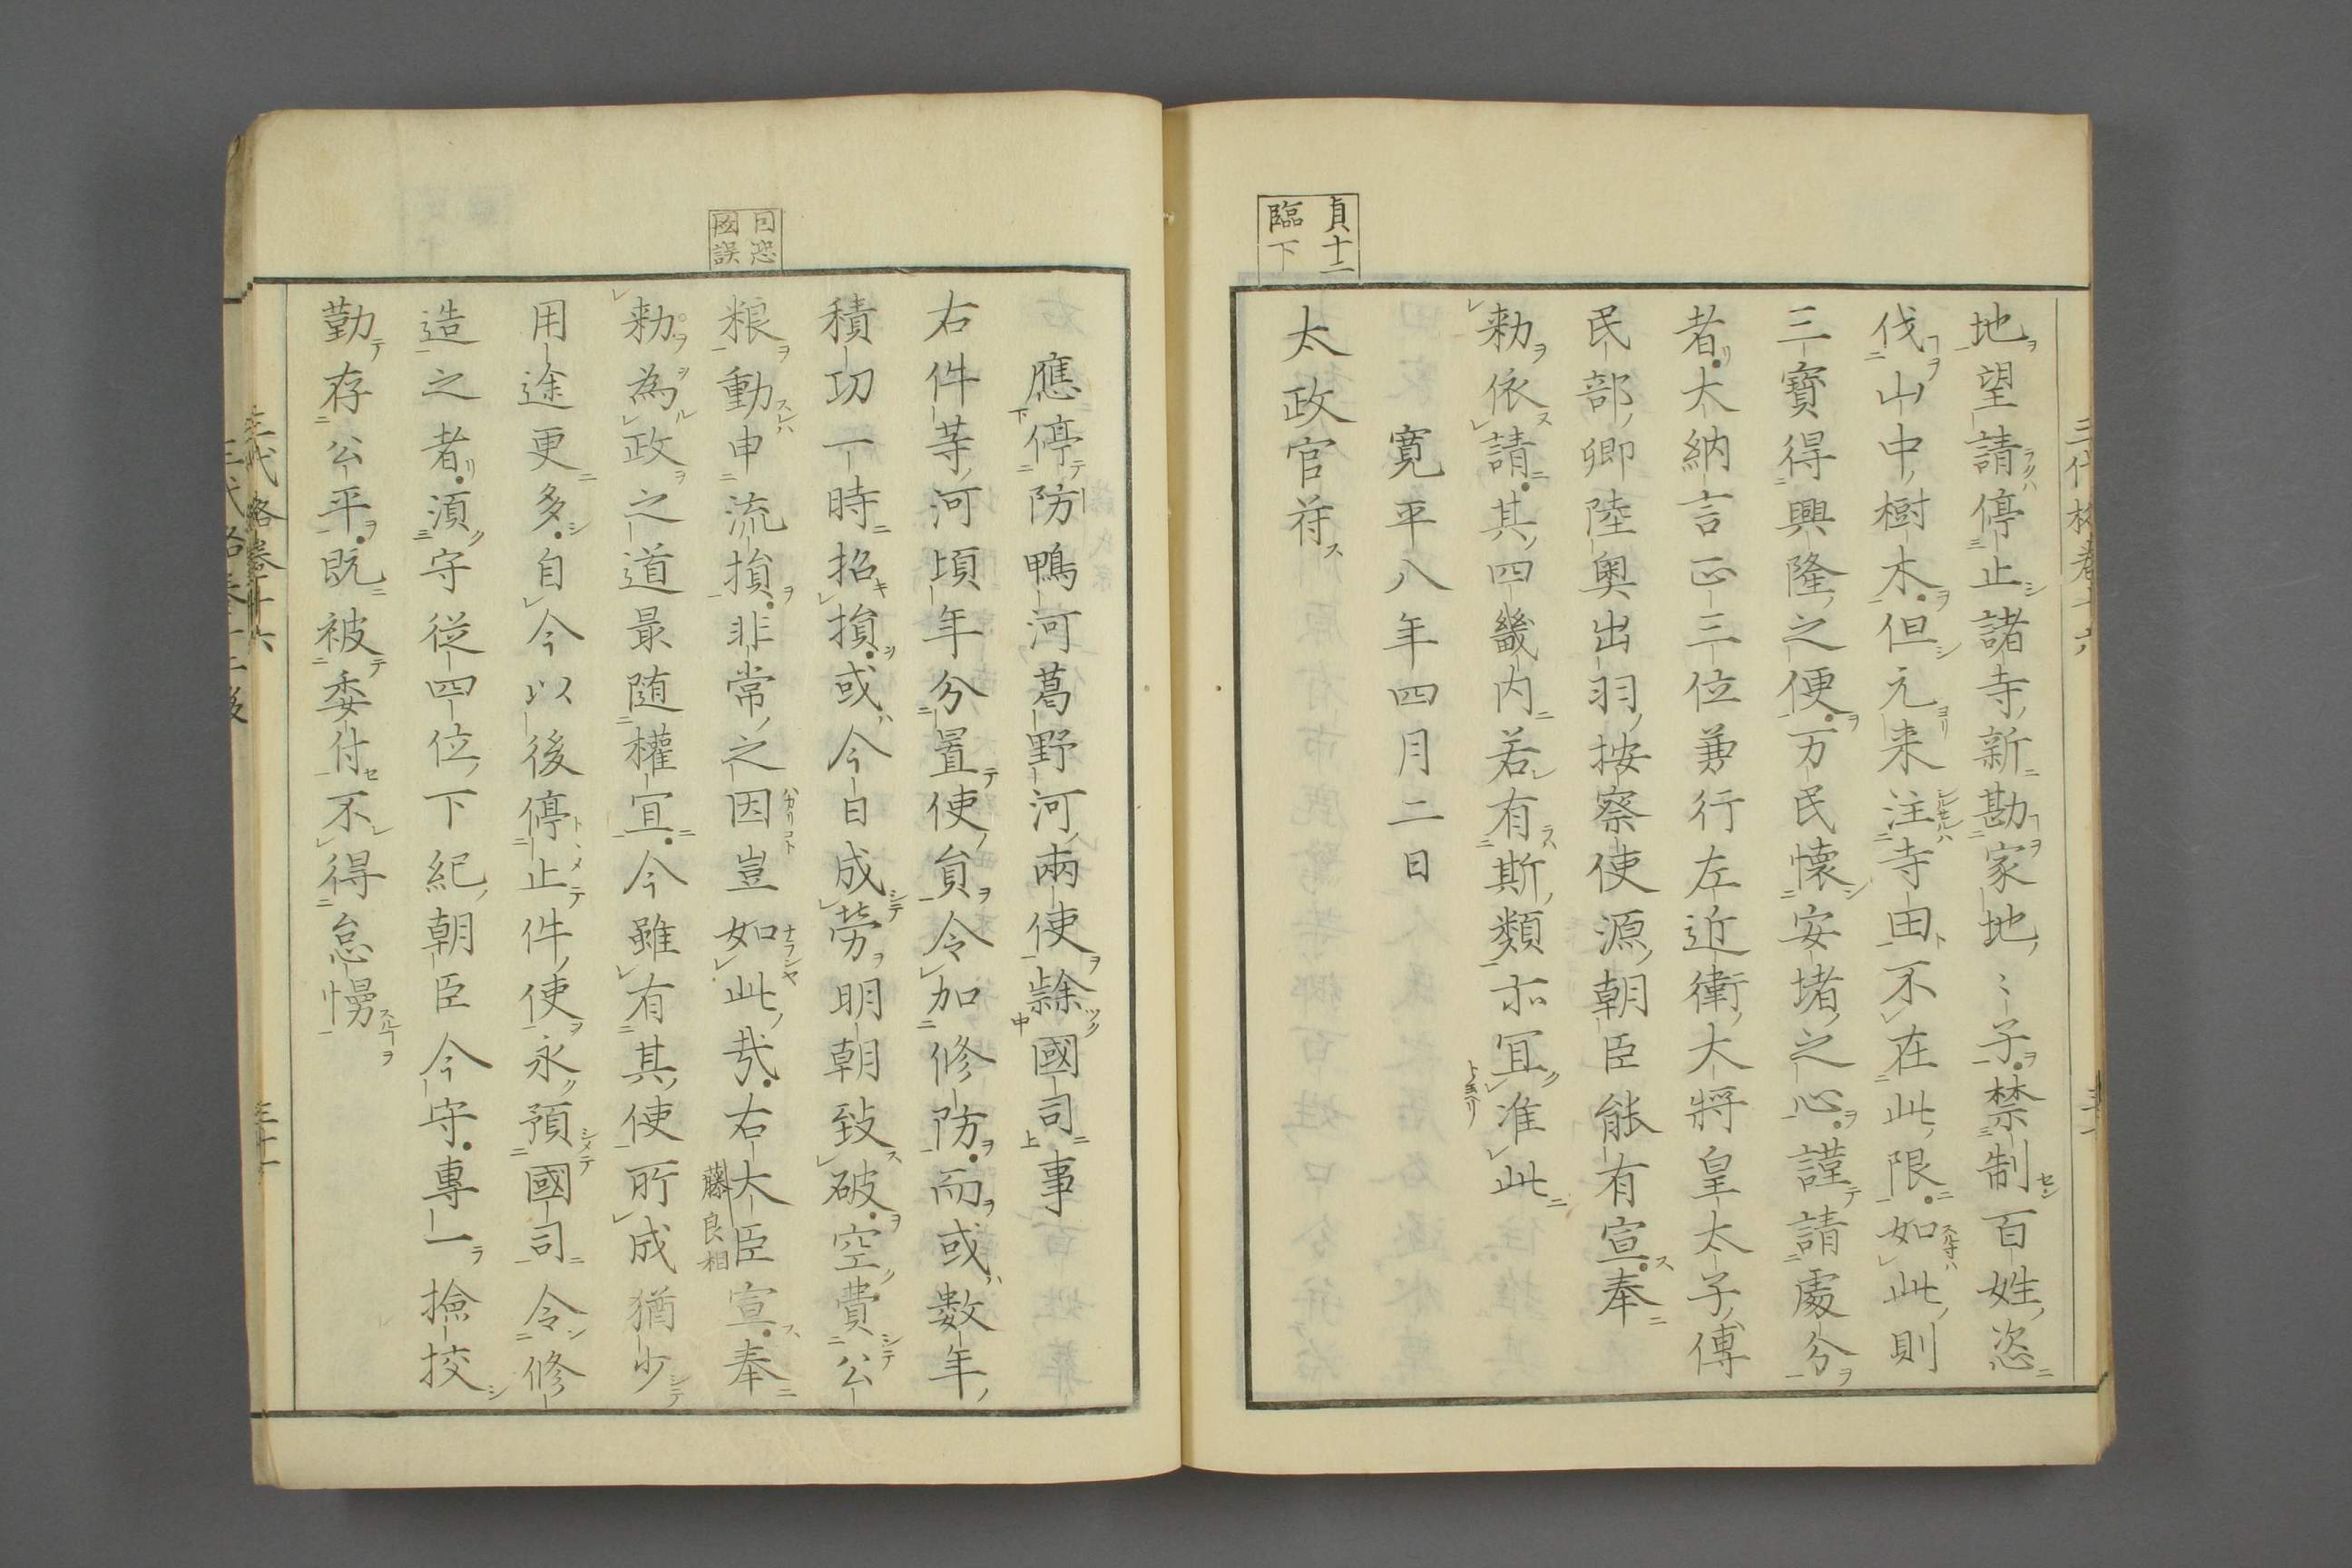 貞十二
臨下
地望請停止諸寺新勘家地〻子禁制百姓恣
伐山中樹木但元来注寺田不在此限如此則
三寳得興隆之便万民懐安堵之心謹請處分
者大納言正三位兼行左近衛大將皇太子傅
民部卿陸奥出羽按察使源朝臣能有宣奉
勅依請其四畿内若有斯類亦冝准此
寛平八年四月二日
太政官符
因恐
國誤
應停防鴨河葛野河兩使隷國司事
右件等河頃年分置使貟令加修防而或数年
積功一時招損或今日成勞明朝致破空費公
粮動申流損非常之因豈如此㢤右大臣宣奉
藤良相
勅為政之道最随權宜今雖有其使所成猶少
用途更多自今以後停止件使永預國司令修
造之者湏守従四位下紀朝臣今守專一撿挍
勤存公平既被委付不得怠慢